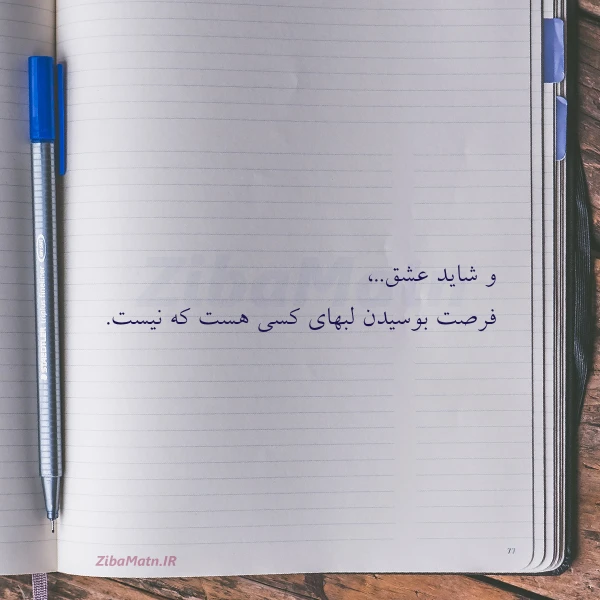 و شاید عشق..،
فرصت بوسیدن لبهای کسی هست که نیست.
ZibaMatn.IR